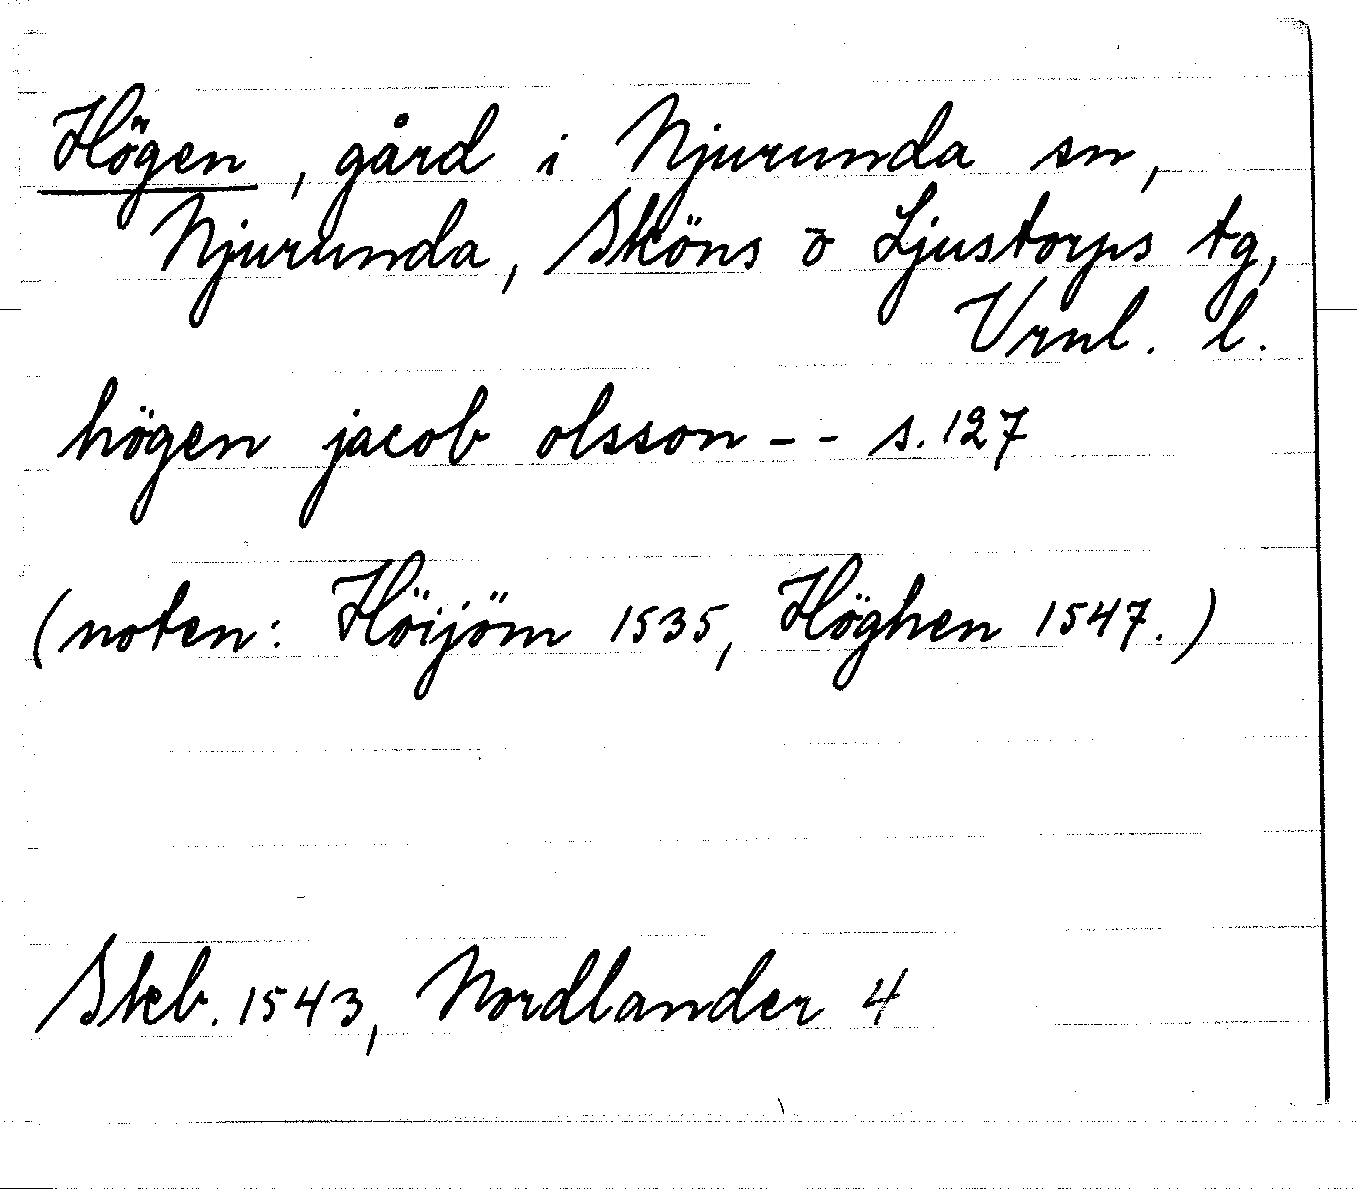 Högen, gård i Njurunda sn,
Njurunda, Sköns o Ljustorps tg,
Vrnl. l.
högen jacob olsson - - s. 127
(noten: Höijöm 1535, Höghen 1547.)
Skb. 1543, Nordlander 4